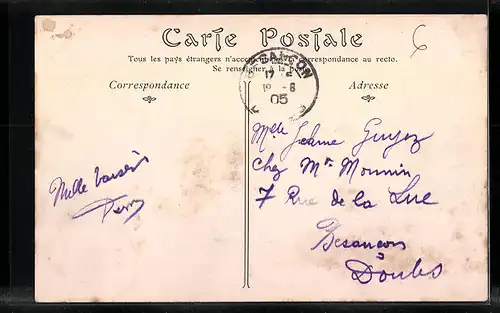 Carte Postale
Tous les pays étrangers n'acceptent pas la correspondance au recto.
Se renseigner à la poste
Correspondance
Adresse
BESANÇON
17
18 -8
05
6
Mlle Jeanne
chez Mr Monnin
7 Rue de la Lue
Besançon
Doubs
Mille baisers